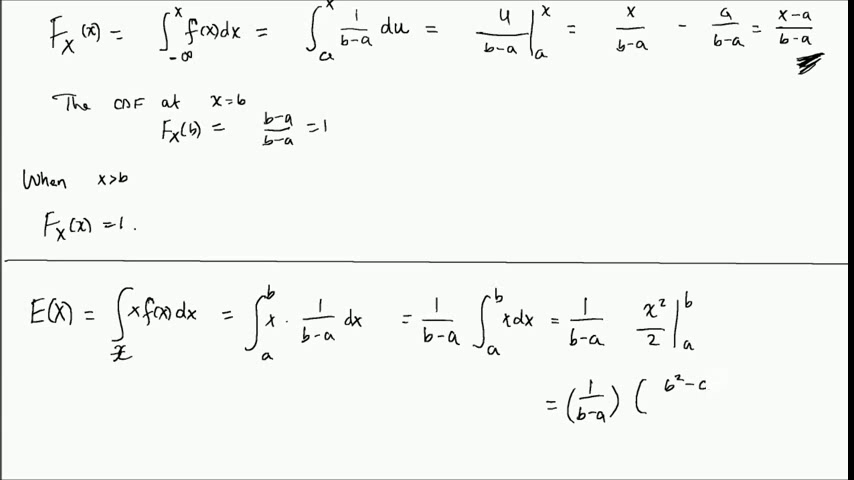 F_X(x) = ∫_{-∞}^{x} f(x)dx = ∫_{a}^{x} 1/(b-a) du = u/(b-a) |_{a}^{x} = x/(b-a) - a/(b-a) = (x-a)/(b-a)
The CDF at x=b
F_X(b) = (b-a)/(b-a) = 1
When x>b
F_X(x) = 1.
E(X) = ∫_{x} x f(x) dx = ∫_{a}^{b} x · 1/(b-a) dx = 1/(b-a) ∫_{a}^{b} x dx = 1/(b-a) x²/2 |_{a}^{b}
= (1/(b-a)) ( b² - c